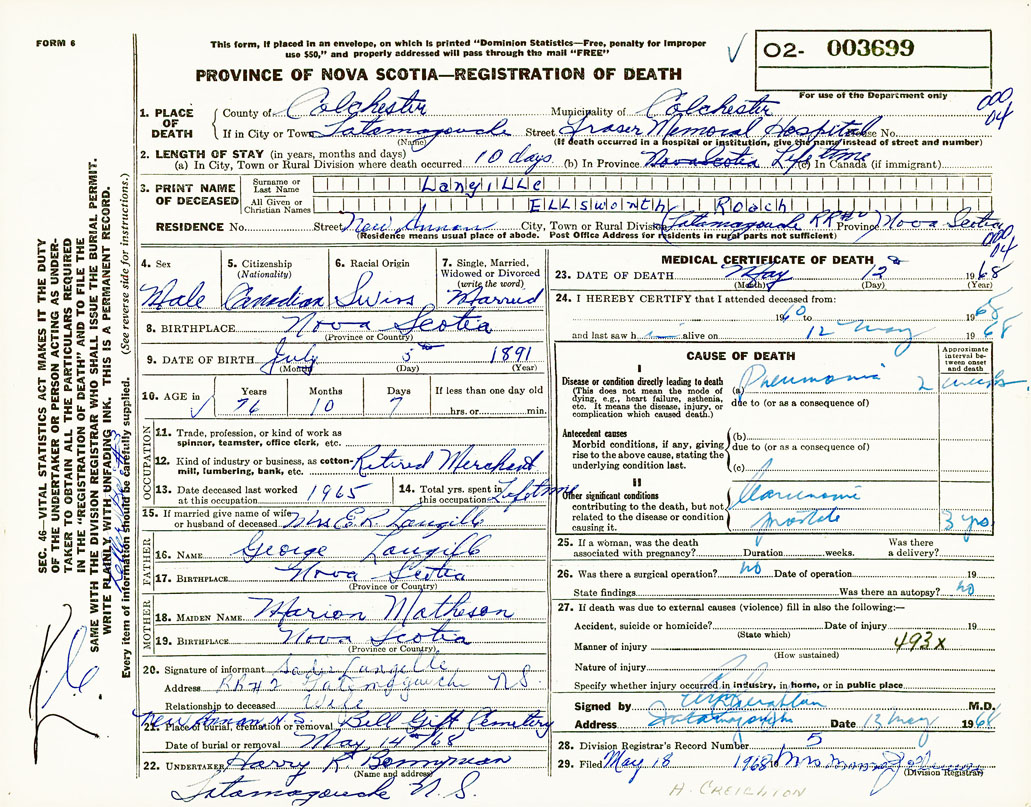 FORM 6
This form, if placed in an envelope, on which is printed "Dominion Statistics—Free, penalty for improper
use $50," and properly addressed will pass through the mail "FREE"
02- 003699
PROVINCE OF NOVA SCOTIA—REGISTRATION OF DEATH
For use of the Department only
000
04
1. PLACE OF DEATH
County of Colchester Municipality of Colchester
If in City or Town Tatamagouche Street Fraser Memorial Hospital House No.
(Name) (If death occurred in a hospital or institution, give the name instead of street and number)
2. LENGTH OF STAY (in years, months and days)
(a) In City, Town or Rural Division where death occurred 10 days (b) In Province Nova Scotia Lifetime (c) In Canada (if immigrant)
3. PRINT NAME OF DECEASED
Surname or Last Name LangiLLe
All Given or Christian Names ELLswonth Roach
RESIDENCE No. Street New Annan City, Town or Rural Division (Tatamagouche RR#2) Province Nova Scotia
(Residence means usual place of abode. Post Office Address for residents in rural parts not sufficient)
000
04
4. Sex
Male
5. Citizenship
(Nationality)
Canadian
6. Racial Origin
Swiss
7. Single, Married,
Widowed or Divorced
(write the word)
Married
8. BIRTHPLACE Nova Scotia
(Province or Country)
9. DATE OF BIRTH July 5th 1891
(Month) (Day) (Year)
10. AGE in
Years Months Days If less than one day old
76 10 7 hrs. or min.
OCCUPATION
11. Trade, profession, or kind of work as
spinner, teamster, office clerk, etc.
12. Kind of industry or business, as cotton-
mill, lumbering, bank, etc. Retired Merchant
13. Date deceased last worked
at this occupation 1965
14. Total yrs. spent in
this occupation Lifetime
15. If married give name of wife
or husband of deceased Mrs E.R. Langille
FATHER
16. NAME George Langille
17. BIRTHPLACE Nova Scotia
(Province or Country)
MOTHER
18. MAIDEN NAME Marion Matheson
19. BIRTHPLACE Nova Scotia
(Province or Country)
20. Signature of informant Sadie Langille
Address RR#2 Tatamagouche N.S.
Relationship to deceased Wife
New Annan N.S.
21. Place of burial, cremation or removal Bell Gift Cemetery
Date of burial or removal May 14th/68
22. UNDERTAKER Harry R Bonnyman
(Name and address)
Tatamagouche N.S.
MEDICAL CERTIFICATE OF DEATH
23. DATE OF DEATH May 12 1968
(Month) (Day) (Year)
24. I HEREBY CERTIFY that I attended deceased from:
1960 to 1968
and last saw h im alive on 12 May 1968
CAUSE OF DEATH
Approximate
interval be-
tween onset
and death
I
Disease or condition directly leading to death
(This does not mean the mode of
dying, e.g., heart failure, asthenia,
etc. It means the disease, injury, or
complication which caused death.)
(a) Pneumonia 2 weeks
due to (or as a consequence of)
Antecedent causes
Morbid conditions, if any, giving
rise to the above cause, stating the
underlying condition last.
(b)
due to (or as a consequence of)
(c)
II
Other significant conditions
contributing to the death, but not
related to the disease or condition
causing it.
3 yrs
25. If a woman, was the death
associated with pregnancy? Duration weeks. Was there
a delivery?
26. Was there a surgical operation? no Date of operation 19
State findings Was there an autopsy? no
27. If death was due to external causes (violence) fill in also the following:—
Accident, suicide or homicide? Date of injury 19
(State which)
Manner of injury 493x
(How sustained)
Nature of injury
Specify whether injury occurred in industry, in home, or in public place
Signed by M.D.
Address Tatamagouche Date 13 May 1968
28. Division Registrar's Record Number 5
29. Filed May 18 1968 Mrs
(Division Registrar)
H. CREIGHTON
SEC. 46—VITAL STATISTICS ACT MAKES IT THE DUTY
OF THE UNDERTAKER OR PERSON ACTING AS UNDER-
TAKER TO OBTAIN ALL THE PARTICULARS REQUIRED
IN THE "REGISTRATION OF DEATH" AND TO FILE THE
SAME WITH THE DIVISION REGISTRAR WHO SHALL ISSUE THE BURIAL PERMIT.
WRITE PLAINLY, WITH UNFADING INK. THIS IS A PERMANENT RECORD.
Every item of information should be carefully supplied. (See reverse side for instructions.)